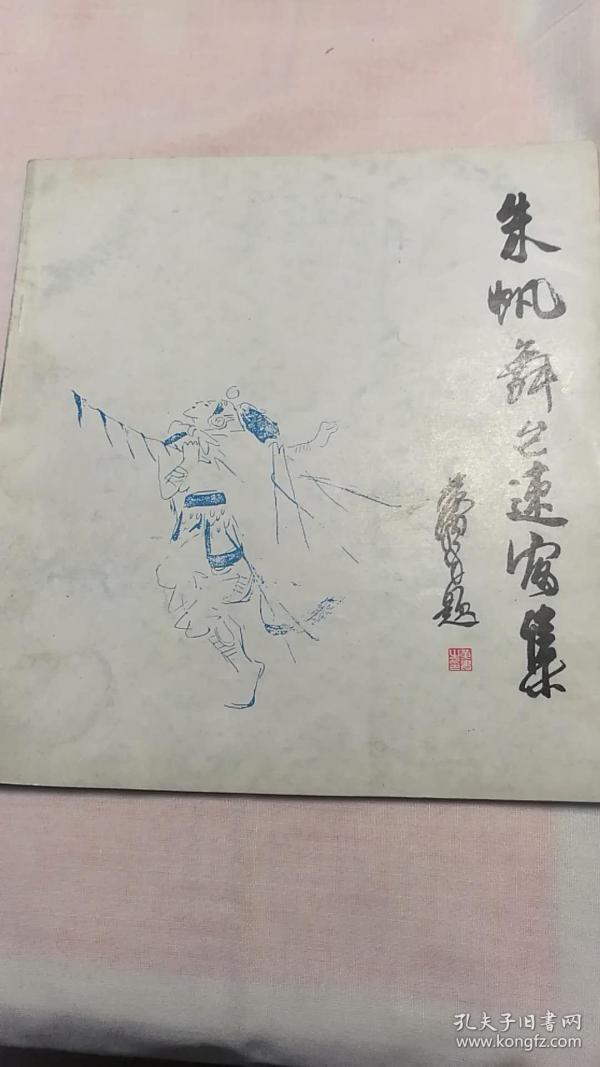 朱帆舞台速写集
题
孔夫子旧书网
www.kongfz.com